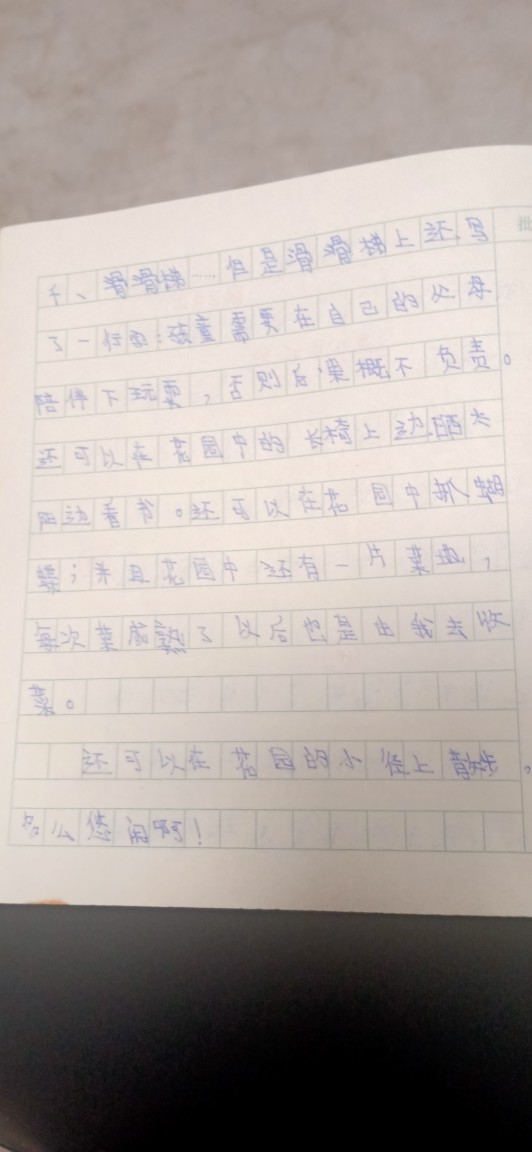 千、滑滑梯……但是滑滑梯上还写
了一行字:孩童需要在自己的父母
陪伴下玩耍,否则后果概不负责。
还可以在花园中的长椅上边晒太
阳边看书。还可以在花园中抓蝴
蝶;并且花园中还有一片菜地,
每次菜成熟了以后也是由我去收
菜。
还可以在花园的小径上散步,
多么悠闲啊!
批